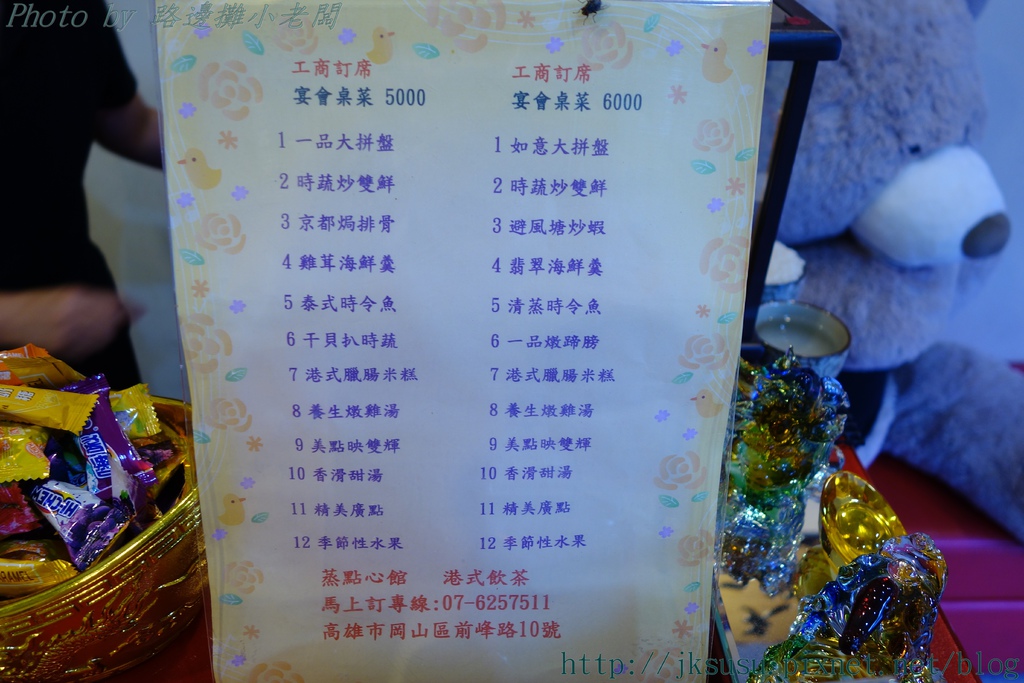 Photo by 路邊攤小老闆
工商訂席
宴會桌菜 5000
1 一品大拼盤
2 時蔬炒雙鮮
3 京都焗排骨
4 雞茸海鮮羹
5 泰式時令魚
6 干貝扒時蔬
7 港式臘腸米糕
8 養生燉雞湯
9 美點映雙輝
10 香滑甜湯
11 精美廣點
12 季節性水果
工商訂席
宴會桌菜 6000
1 如意大拼盤
2 時蔬炒雙鮮
3 避風塘炒蝦
4 翡翠海鮮羹
5 清蒸時令魚
6 一品燉蹄膀
7 港式臘腸米糕
8 養生燉雞湯
9 美點映雙輝
10 香滑甜湯
11 精美廣點
12 季節性水果
蒸點心館 港式飲茶
馬上訂專線:07-6257511
高雄市岡山區前峰路10號
HI-CHEW